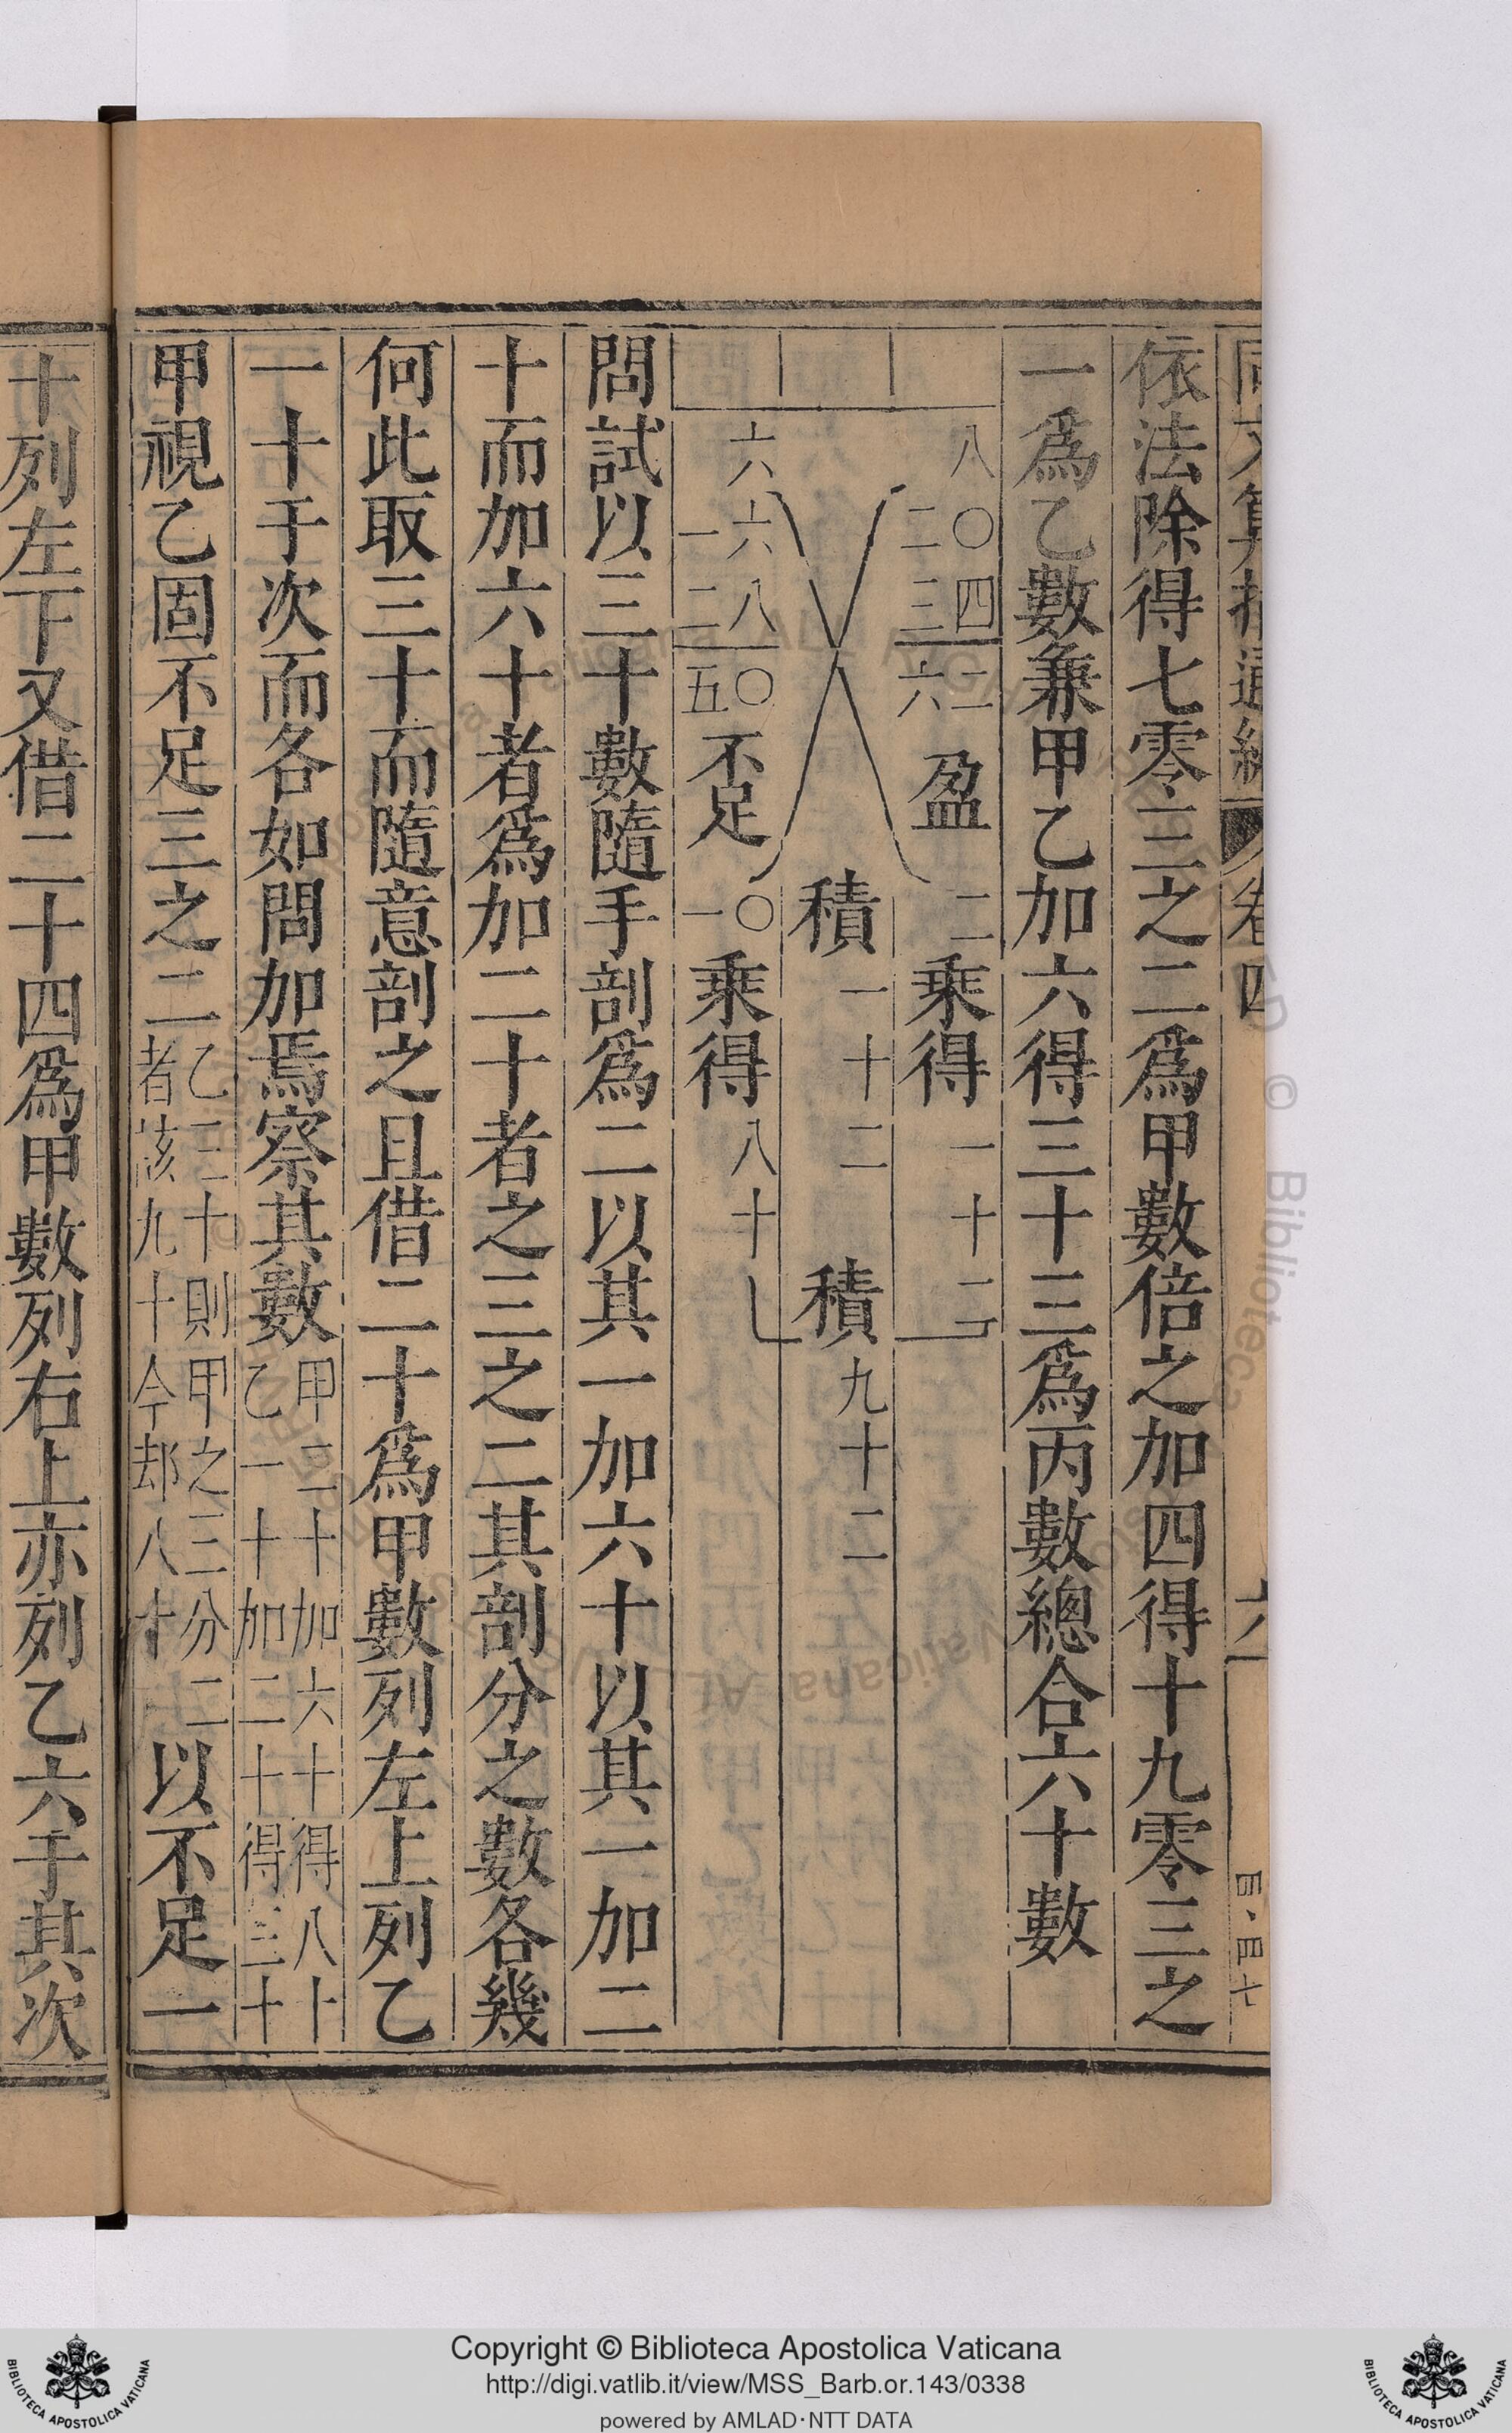 同文算指通編 卷四 六
依法除得七零三之二爲甲數倍之加四得十九零三之
一爲乙數兼甲乙加六得三十三爲丙數總合六十數
八 二〇 三四 六二 盈 二 乘得 一十二
積 一十二 積 九十二
六 一六 二八 五〇 不足 一〇 乘得 八十
問試以三十數隨手剖爲二以其一加六十以其一加二
十而加六十者爲加二十者之三之二其剖分之數各幾
何此取三十而隨意剖之且借二十爲甲數列左上列乙
一十于次而各如問加焉察其數甲二十加六十得八十乙一十加二十得三十
甲視乙固不足三之二乙三十則甲之三分二者該九十今却八十以不足一
十列左下又借二十四爲甲數列右上亦列乙六于其次
Copyright © Biblioteca Apostolica Vaticana
http://digi.vatlib.it/view/MSS_Barb.or.143/0338
powered by AMLAD·NTT DATA
BIBLIOTECA APOSTOLICA VATICANA
BIBLIOTECA APOSTOLICA VATICANA